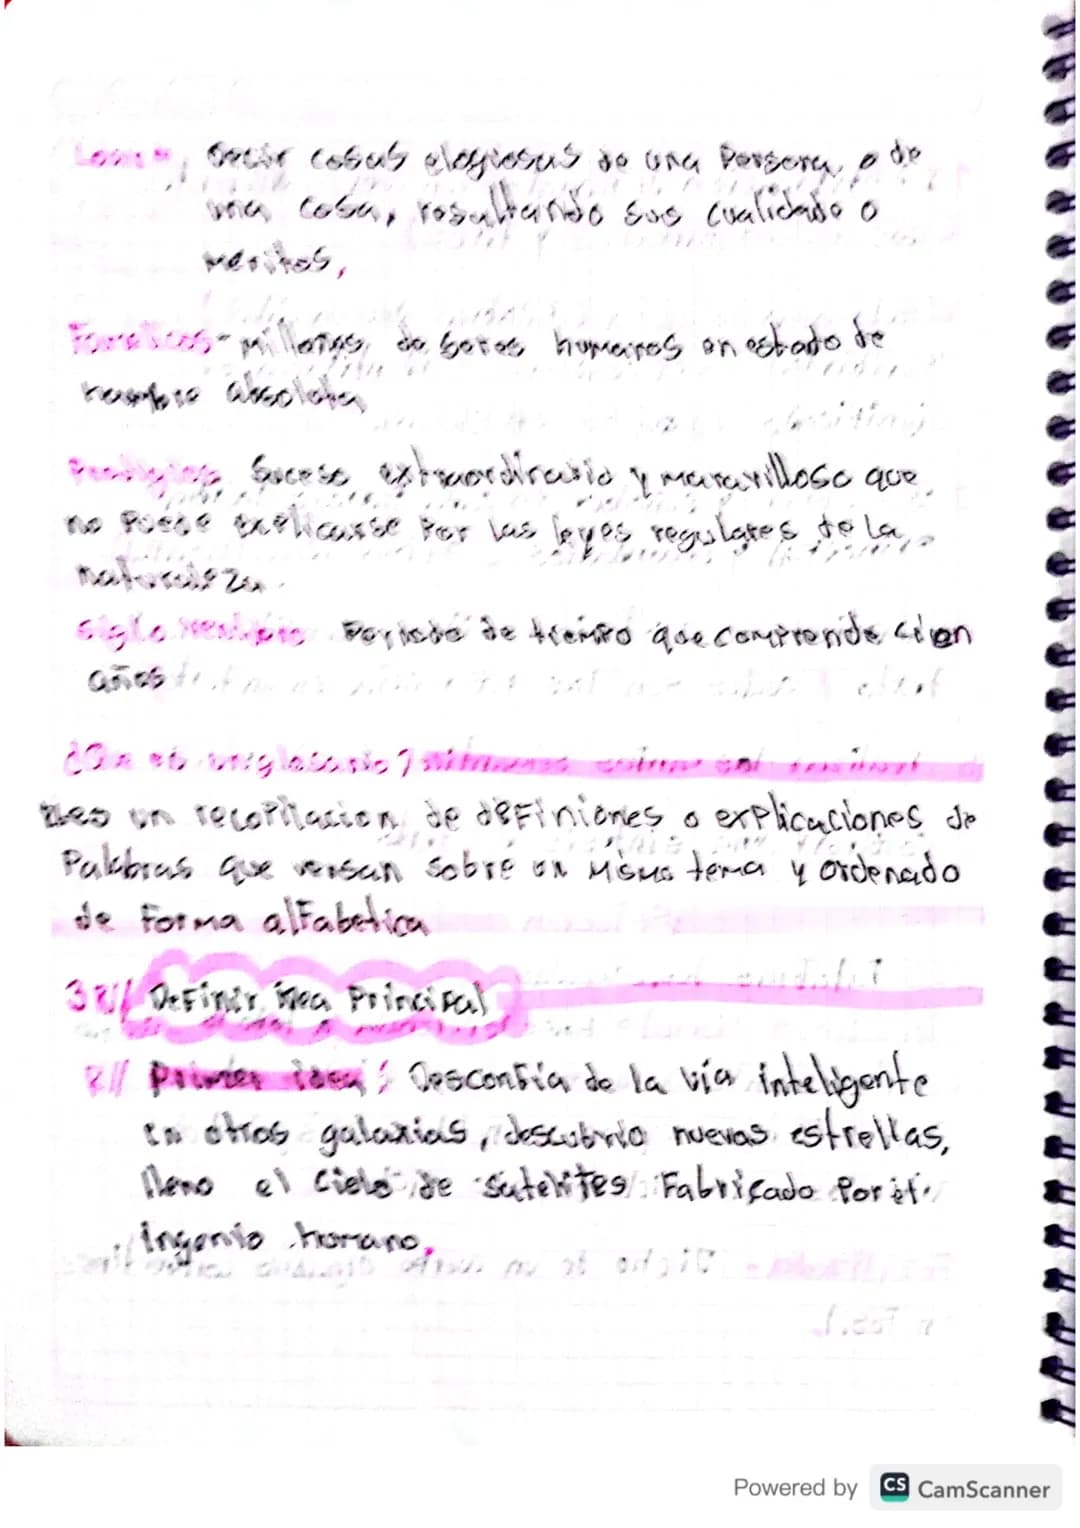 Decir cosas elogiosas de una Persona, o de
una cosa, resultando sus cualidade o
meritos,
Fanaticos - millones de seres humanos en estado de
hambre absoluta
Prodigios Suceso extraordinario y maravilloso que
no Puede explicarse Por las leyes regulares de la
naturaleza.
Siglo Periodo de tiempo que comprende cien
años
¿Que es un glosario?
es un recopilacion de definiones o explicaciones de
Palabras que versan sobre un mismo tema y ordenado
de forma alfabetica
3 R// Definir idea Principal
R// Primer idea: Desconfía de la vía inteligente
en otras galaxias, descubrio nuevas estrellas,
lleno el cielo de satelites Fabricado Por el
ingenio humano.
Powered by CS CamScanner